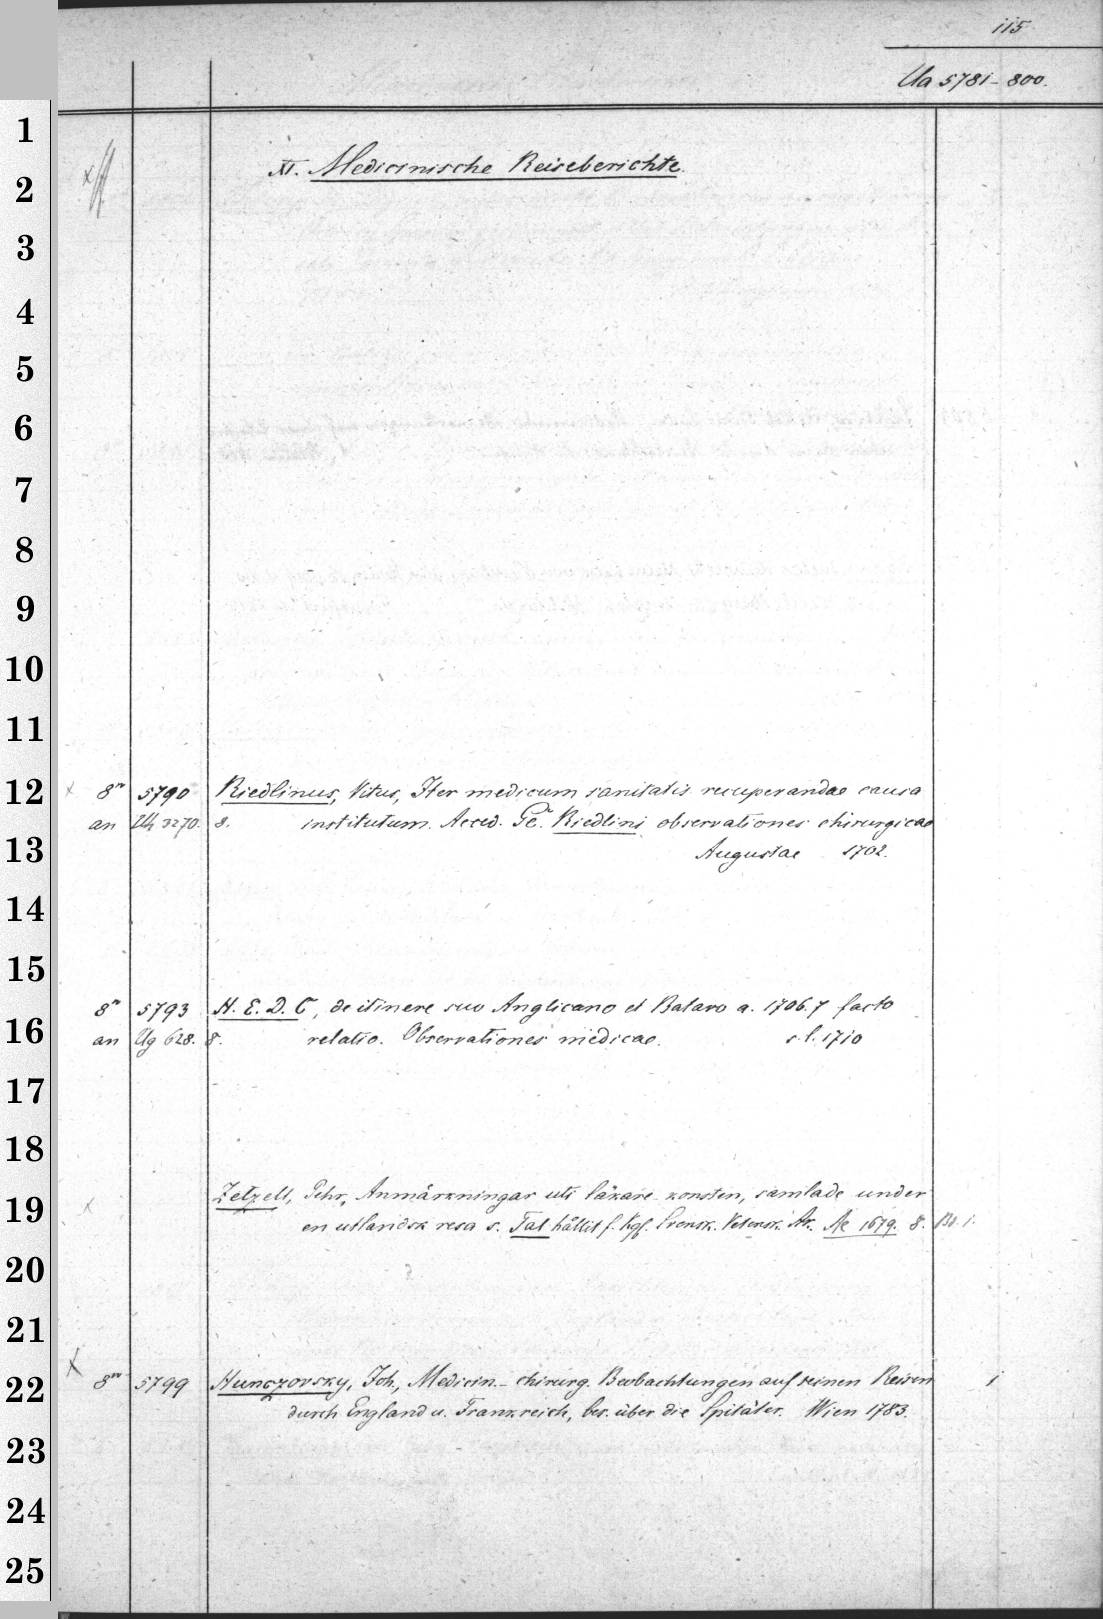 115
Ua 5781-800.
XI. Medicinische Reiseberichte.
1
2
3
4
5
6
7
8
9
10
11
12
13
14
15
16
17
18
19
20
21
22
23
24
25
8° 5790 Riedlinus, Vitus, Iter medicum sanitatis recuperandae causa
an Uh 3270. 8. institutum. Acced. Riedlini observationes chirurgicae
Augustae 1702.
8° 5793 H. E. D. C, de itinere suo Anglicano et Batavo a. 1706.7 facto
an Ug 628. 8. relatio. Observationes medicae. s. l. 1710
Zetzell, Pehr, Anmärkningar uti läkare konsten, samlade under
en utländsk resa s. Tal hållit f. Kgl. Svensk. Vetensk. Ak. Ae 1679. 8. Bd. 1.
8° 5799 Hunczovsky, Joh., Medicin.-chirurg. Beobachtungen auf seinen Reisen 1
durch England u. Frankreich, bes. über die Spitäler. Wien 1783.